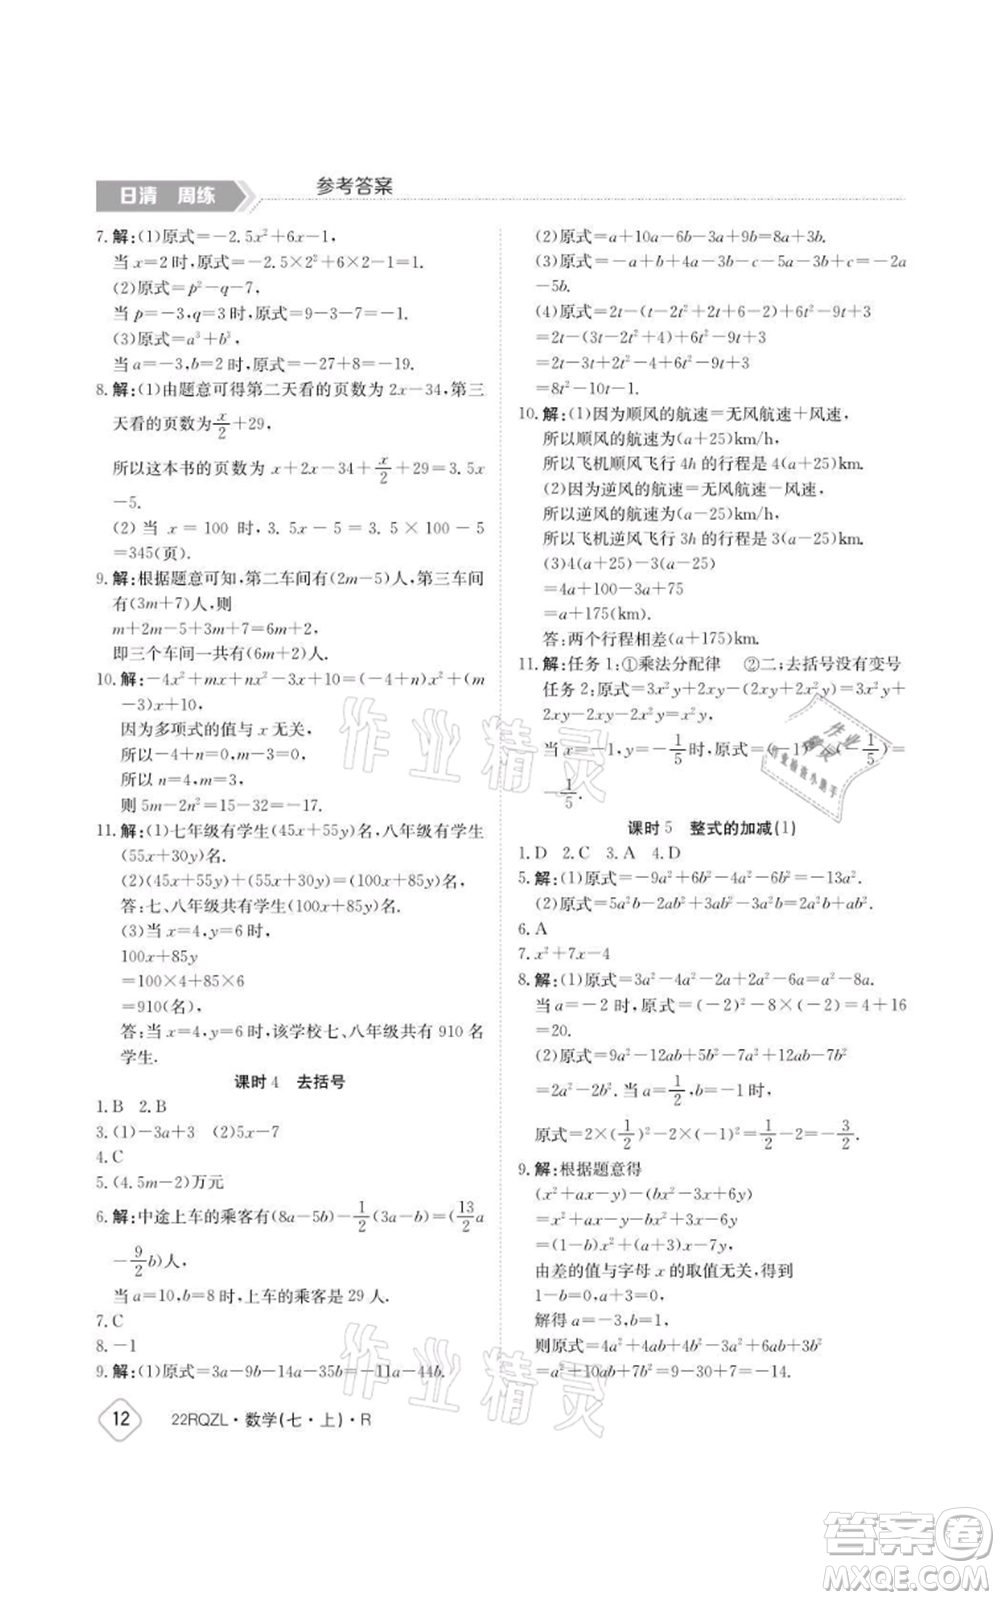 日清 周练
参考答案
7.解:(1)原式=-2.5x²+6x-1,
当x=2时,原式=-2.5×2²+6×2-1=1.
(2)原式=p²-q-7,
当p=-3,q=3时,原式=9-3-7=-1.
(3)原式=a³+b³,
当a=-3,b=2时,原式=-27+8=-19.
8.解:(1)由题意可得第二天看的页数为2x-34,第三
天看的页数为x/2+29,
所以这本书的页数为x+2x-34+x/2+29=3.5x
-5.
(2)当x=100时,3.5x-5=3.5×100-5
=345(页).
9.解:根据题意可知,第二车间有(2m-5)人,第三车间
有(3m+7)人,则
m+2m-5+3m+7=6m+2,
即三个车间一共有(6m+2)人.
10.解:-4x²+mx+nx²-3x+10=(n-4)x²+(m
-3)x+10,
因为多项式的值与x无关,
所以-4+n=0,m-3=0,
所以n=4,m=3,
则5m-2n²=15-32=-17.
11.解:(1)七年级有学生(45x+15y)名,八年级有学生
(55x+30y)名.
(2)(45x+55y)+(55x+30y)=(100x+85y)名.
答:七、八年级共有学生(100x+85y)名.
(3)当x=4,y=6时,
100x+85y
=100×4+85×6
=910(名),
答:当x=4,y=6时,该学校七、八年级共有910名
学生.
课时4 去括号
1.B 2.B
3.(1)-3a+3 (2)5x-7
4.C
5.(4.5m-2)万元
6.解:中途上车的乘客有(8a-5b)-1/2(3a-b)=(13/2a
-9/2b)人,
当a=10,b=8时,上车的乘客是29人.
7.C
8.-1
9.解:(1)原式=3a-9b-14a-35b=-11a-44b.
(2)原式=a+10a-6b-3a+9b=8a+3b.
(3)原式=-a+b-c-a-3b-3b+c=-2a
-5b.
(4)原式=2t-(t-2t²+4t+6-2)+6t²-9t+3
=2t-(3t-2t²+4)+6t²-9t+3
=2t-3t+2t²-4+6t²-9t+3
=8t²-10t-1.
10.解:(1)因为顺风的航速=无风航速+风速,
所以顺风的航速为(a+25)km/h,
所以飞机顺风飞行4h的行程是4(a+25)km.
(2)因为逆风的航速=无风航速-风速,
所以逆风的航速为(a-25)km/h,
所以飞机逆风飞行3h的行程是3(a-25)km.
(3)4(a+25)-3(a-25)
=4a+100-3a+75
=a+175(km).
答:两个行程相差(a+175)km.
11.解:任务1:①乘法分配律 ②二;去括号没有变号
任务2:原式=3x²y+2xy-2xy-2x²y=x²y+
2xy-2xy=x²y,
当x=-1,y=-1/5时,原式=(-1)²×(-1/5)=
-1/5.
课时5 整式的加减(1)
1.D 2.C 3.A 4.D
5.解:(1)原式=-9a²+6b²-4a²-6b²=-13a².
(2)原式=5a²b-2ab²-5ab²+3a²b=8a²b-7ab².
6.A
7.x²+7x-4
8.解:(1)原式=3a²-4a²-2a+2a²-6a=a²-8a.
当a=-2时,原式=(-2)²-8×(-2)=4+16
=20.
(2)原式=9a²-12ab+5b²-7a²+12ab-7b²
=2a²-2b².当a=1/2,b=-1时,
原式=2×(1/2)²-2×(-1)²=1/2-2=-3/2.
9.解:根据题意得
(x²+ax-y)-(bx²-x+6y)
=x²+ax-y-bx²+x-6y
=(1-b)x²+(a+1)x-7y.
由差的值与字母x的取值无关,得到
1-b=0,a+1=0,
解得a=-1,b=1,
12
22RQZL·数学(七·上)·R
作业精灵
作业精灵
答案圈
MXQE.COM